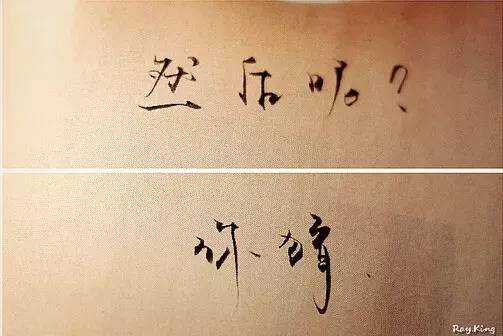 然后呢？
你猜.
Ray.King